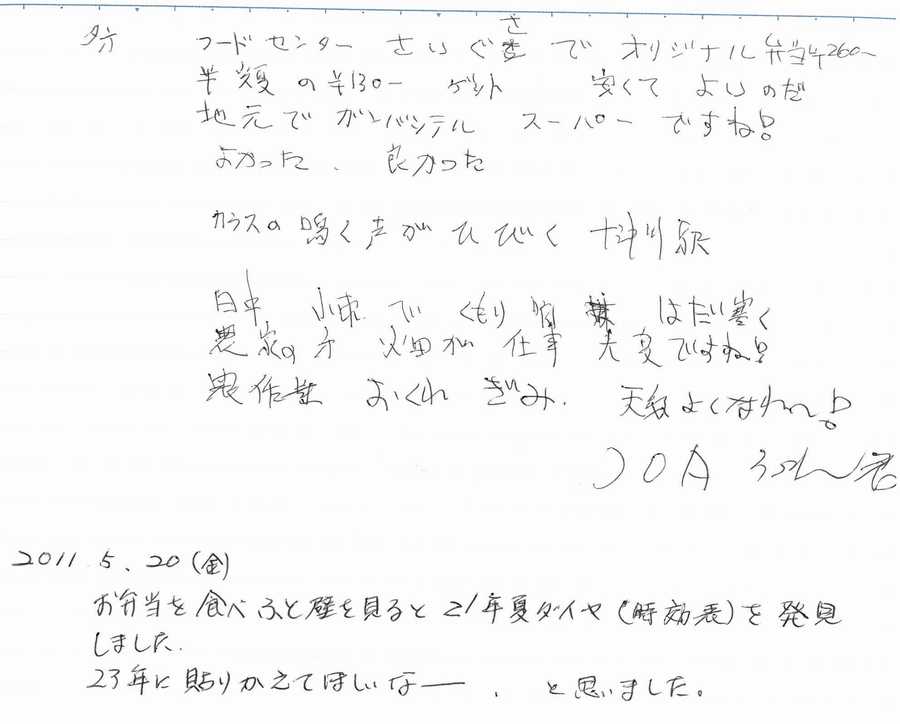 夕方 フードセンター さいぐさ で オリジナル 弁当¥260ー
半額 の ¥130ー ゲット 安くて よいのだ
地元で ガンバッテル スーパー ですね!
よかった. 良かった
カラスの 鳴く声が ひびく 十津川駅
日中 小雨 で くもり 模様 はだ寒く
農家の方 火田が 仕事 大変ですね!
農作業 おくれ ぎみ. 天気よくなれ〜!
JOA 君
2011.5.20(金)
お弁当を食べふと壁を見ると21年夏ダイヤ(時効表)を発見
しました.
23年に貼りかえてほしいなー.と思いました。